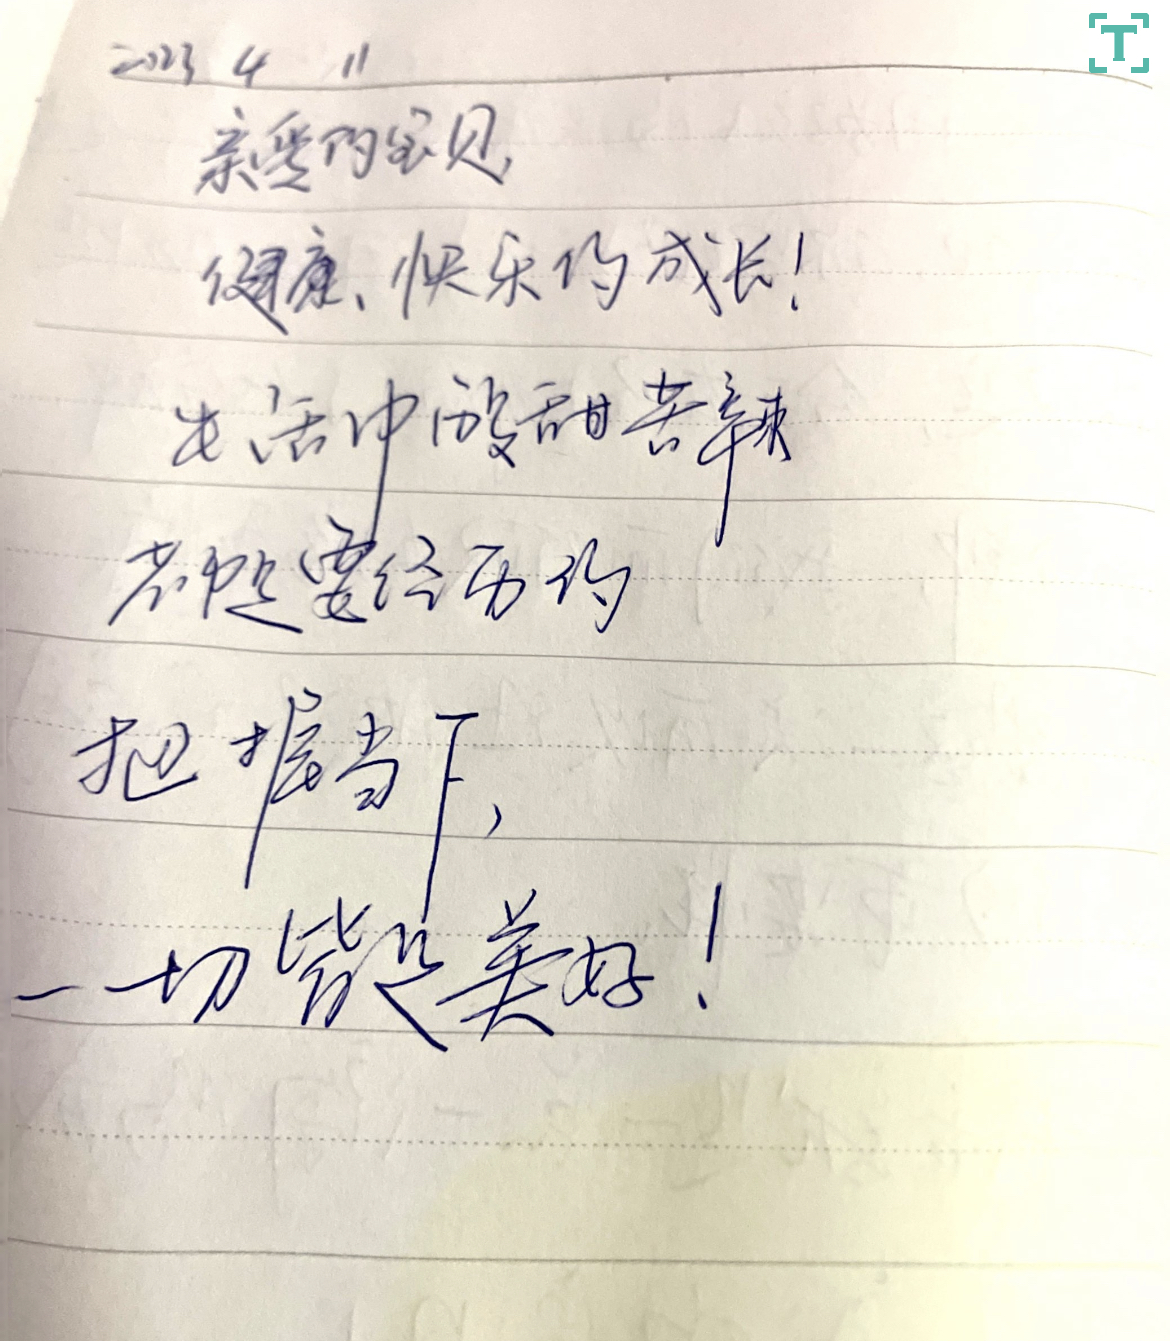 2023 4 11
亲爱的宝贝,
健康、快乐的成长!
生活中的酸甜苦辣
都是要经历的
把握当下,
一切皆是美好!